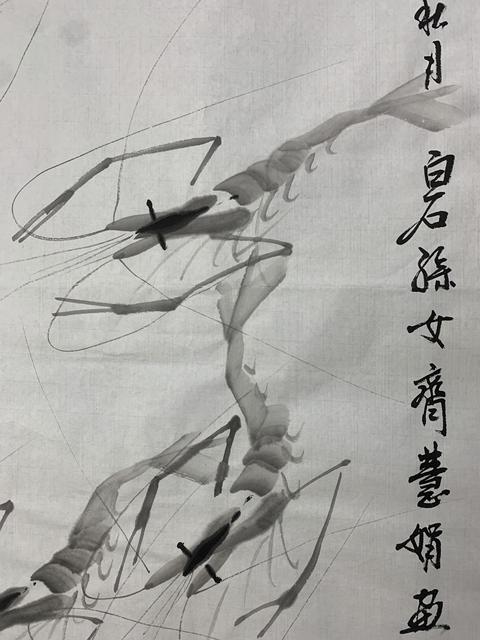 秋月白石孫女齊慧娟画